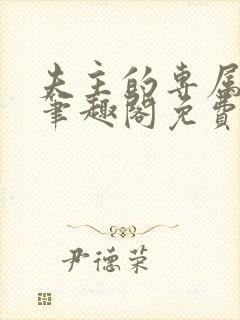 夫主的专属
笔趣阁免費
尹德荣